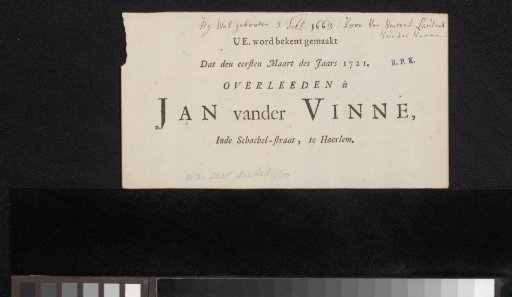 Hy was gebooren 3 Feb. 1663 Zoon van Vincent Laurens
Vander Vinne
UE. word bekent gemaakt
Dat den eersten Maart des Jaars 1721.
R.P.K.
OVERLEEDEN is
JAN vander VINNE,
Inde Schachel-straat, te Haerlem.
was zeer